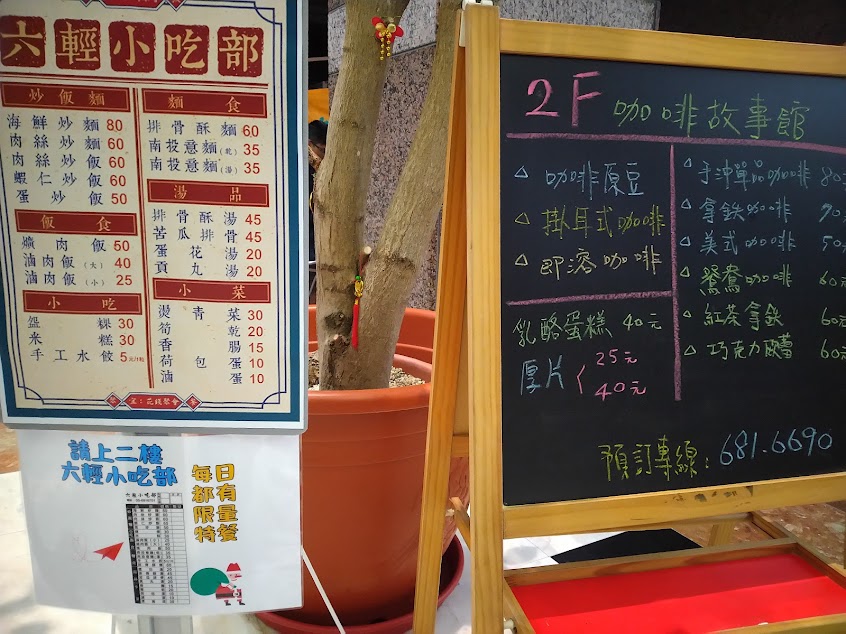 六輕小吃部
炒飯麵
海鮮炒麵 80
肉絲炒麵 60
肉絲炒飯 60
蝦仁炒飯 60
蛋炒飯 50
飯食
爌肉飯 50
滷肉飯(大) 40
滷肉飯(小) 25
小吃
碗粿 30
米糕 30
手工水餃 5元/1粒
麵食
排骨酥麵 60
南投意麵(乾) 35
南投意麵(湯) 35
湯品
排骨酥湯 45
苦瓜排骨 45
蛋花湯 20
貢丸湯 20
小菜
燙青菜 30
筍乾 20
香腸 15
荷包蛋 10
滷蛋 10
請上二樓
六輕小吃部
每日
都有
限量
特餐
六輕小吃部
2F 咖啡故事館
咖啡原豆
掛耳式咖啡
即溶咖啡
乳酪蛋糕 40元
厚片 25元
40元
手沖單品咖啡 80
拿鉄咖啡 70
美式咖啡 50
鴛鴦咖啡 60元
紅茶拿鉄 60元
巧克力歐蕾 60
預訂專線:681.6690